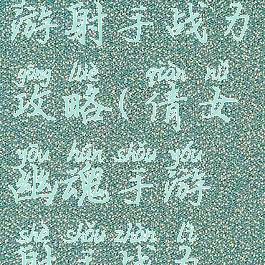 游射手战力
gōng lüè qiàn nǚ
攻略(倩女
yōu hún shǒu yóu
幽魂手游
shè shǒu zhàn lì
射手战力